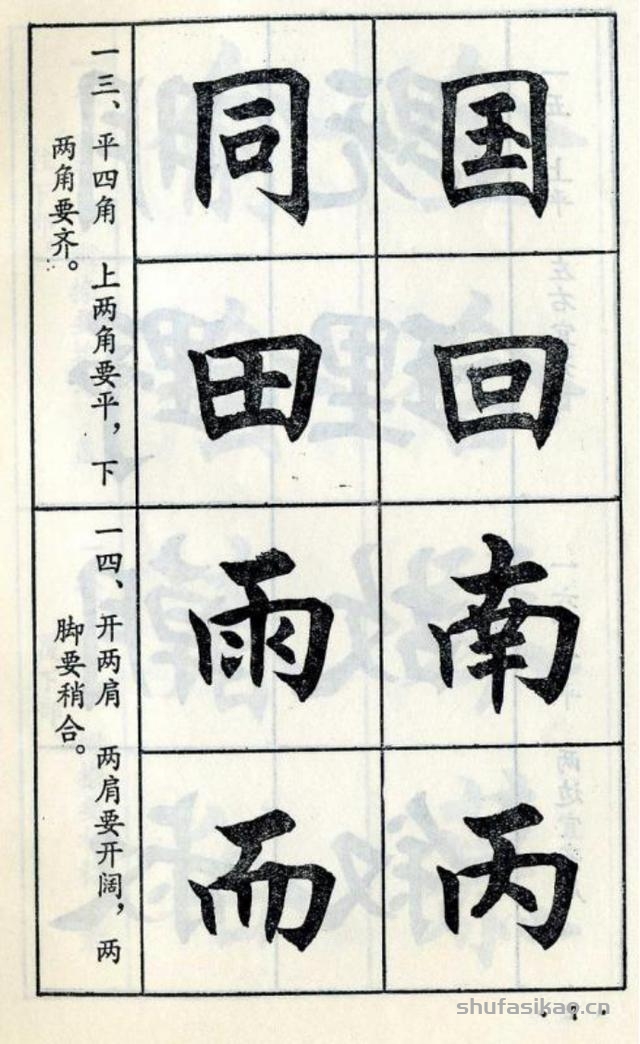 国
回
南
丙
同
田
雨
而
一三、平四角 上两角要平，下
两角要齐。
一四、开两肩 两肩要开阔，两
脚要稍合。
shufasikao.cn
· 7 ·